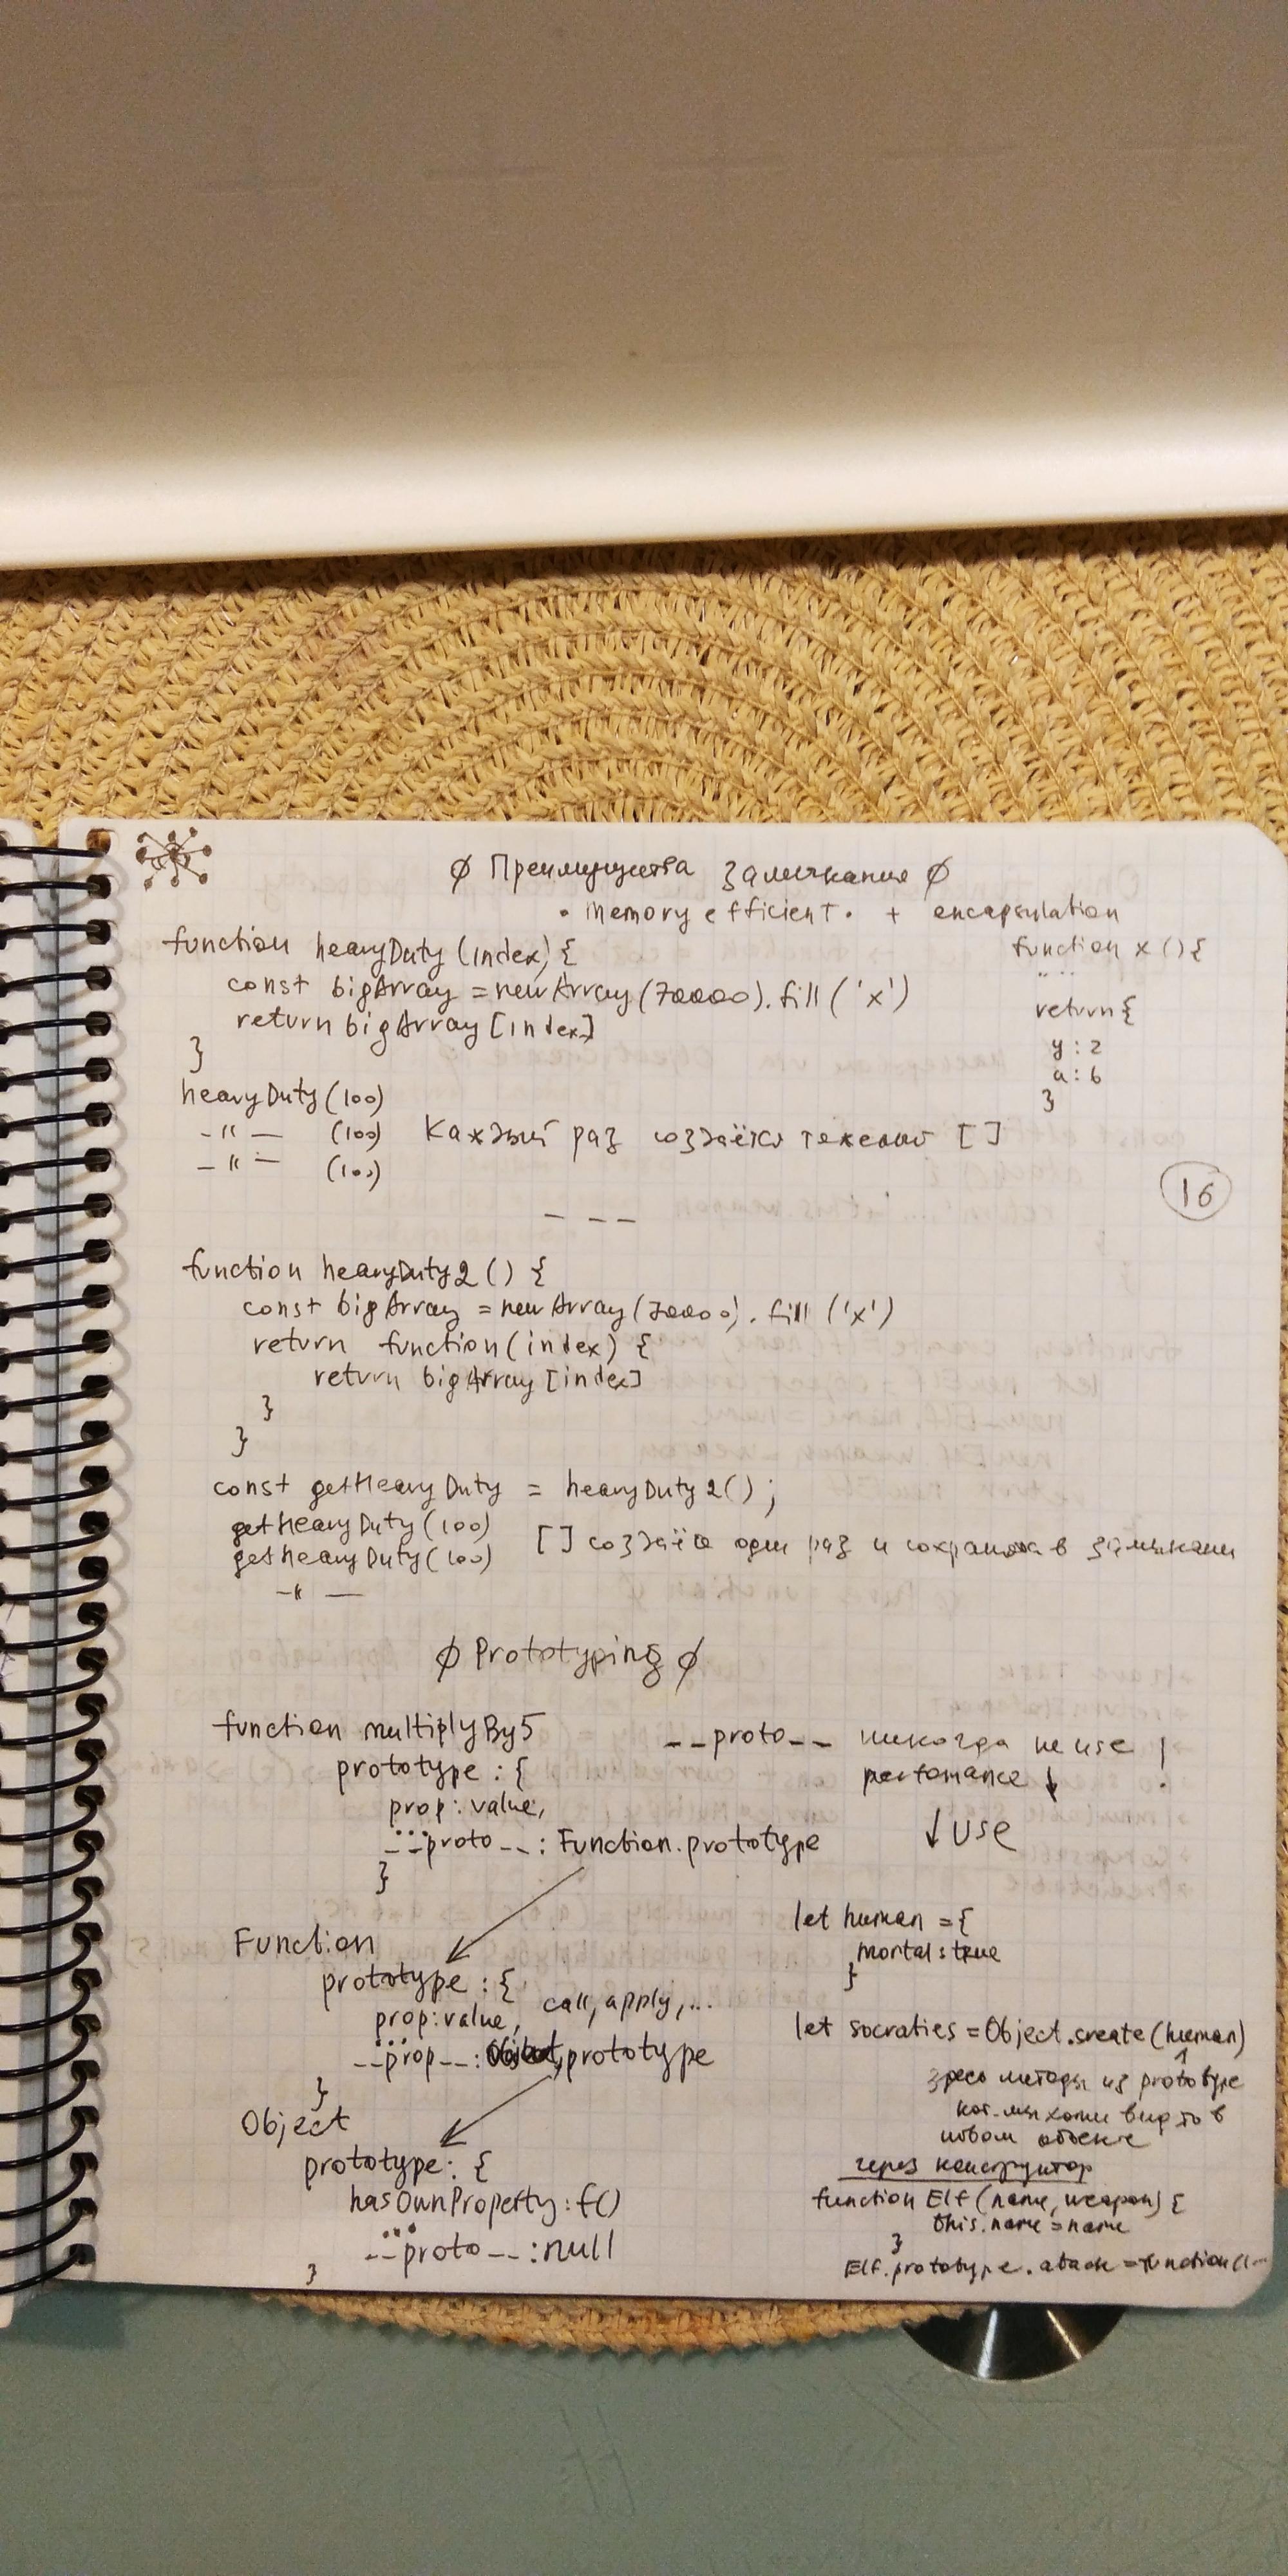 ∅ Преимущества Замыкания ∅
• memory efficient • + encapsulation
function heavyDuty (index) {
const bigArray = new Array(70000).fill('x')
return bigArray [index]
}
heavyDuty (100)
-"- (100) Каждый раз создаётся тяжелый []
-"- (100)
function x () {
return {
y : 2
a : 6
}
16
- - -
function heavyDuty2 () {
const bigArray = new Array(70000).fill ('x')
return function (index) {
return bigArray [index]
}
}
const getHeavyDuty = heavyDuty2() ;
getHeavyDuty (100)
getHeavyDuty (100) [] создаётся один раз и сохраняется в замыкании
-"-
∅ Prototyping ∅
function multiplyBy5
prototype : {
prop : value,
...
__proto__ : Function.prototype
}
Function
prototype : {
prop : value, call, apply, ...
...
__prop__ : Object.prototype
}
Object
prototype : {
hasOwnProperty : f()
...
__proto__ : null
}
__proto__ никогда не use !
perfomance ↓
↓ use
let human = {
mortal : true
}
let socraties = Object.create (human)
↑
здесь методы из prototype
кот. мы хотим видеть в
новом объекте
через конструктор
function Elf (name, weapon) {
this.name = name
}
Elf.prototype.atack = function ()